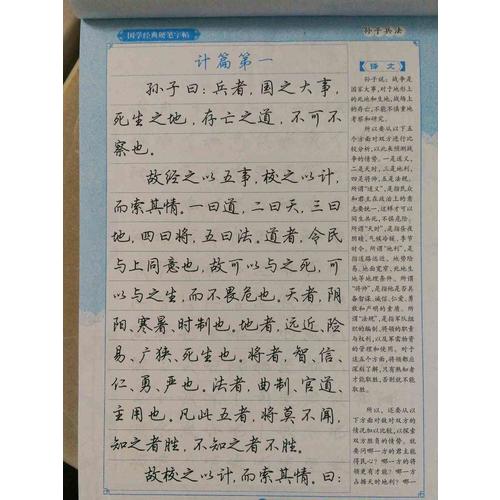 国学经典硬笔字帖
孙子兵法
计篇第一
孙子曰:兵者,国之大事,
死生之地,存亡之道,不可不
察也。
故经之以五事,校之以计,
而索其情。一曰道,二曰天,三曰
地,四曰将,五曰法。道者,令民
与上同意也,故可以与之死,可
以与之生,而不畏危也。天者,阴
阳、寒暑、时制也。地者,远近、险
易、广狭、死生也。将者,智、信、
仁、勇、严也。法者,曲制、官道、
主用也。凡此五者,将莫不闻,
知之者胜,不知之者不胜。
故校之以计,而索其情。曰:
【译文】
孙子说:战争是
国家大事,对于地形上
的死地和生地,战场上
的存亡,不能不慎重地
考察和研究。
所以要从以下五
个方面对双方进行比
较分析,以此来预测战
争的情势。一是道义,
二是天时,三是地利,
四是将帅,五是法规。
所谓“道义”,是指民众
和君主在政治上的意
志要统一,这样才可以
同生共死,不惧危险。
所谓“天时”,是指昼夜
阴晴、气候冷暖、季节
时令。所谓“地利”,是
指道路远近、地势险
易、地面宽窄、死地生
地等地理条件。所谓
“将帅”,是指他是否具
备智谋、诚信、仁爱、勇
敢和严明的素质。所
谓“法规”,是指军队组
织的编制,将领的职责
与权利,以及军需物资
的管理和使用。对于
这五个方面,将领都应
深刻了解,只有熟知者
才能取胜,否则就不能
取胜。
所以,还要从以
下方面对敌对双方的
情况加以比较,以探索
双方胜负的情势。就
要问哪一方的君主能
得民心?哪一方的将
领更有才能?哪一方
占据天时地利?哪一